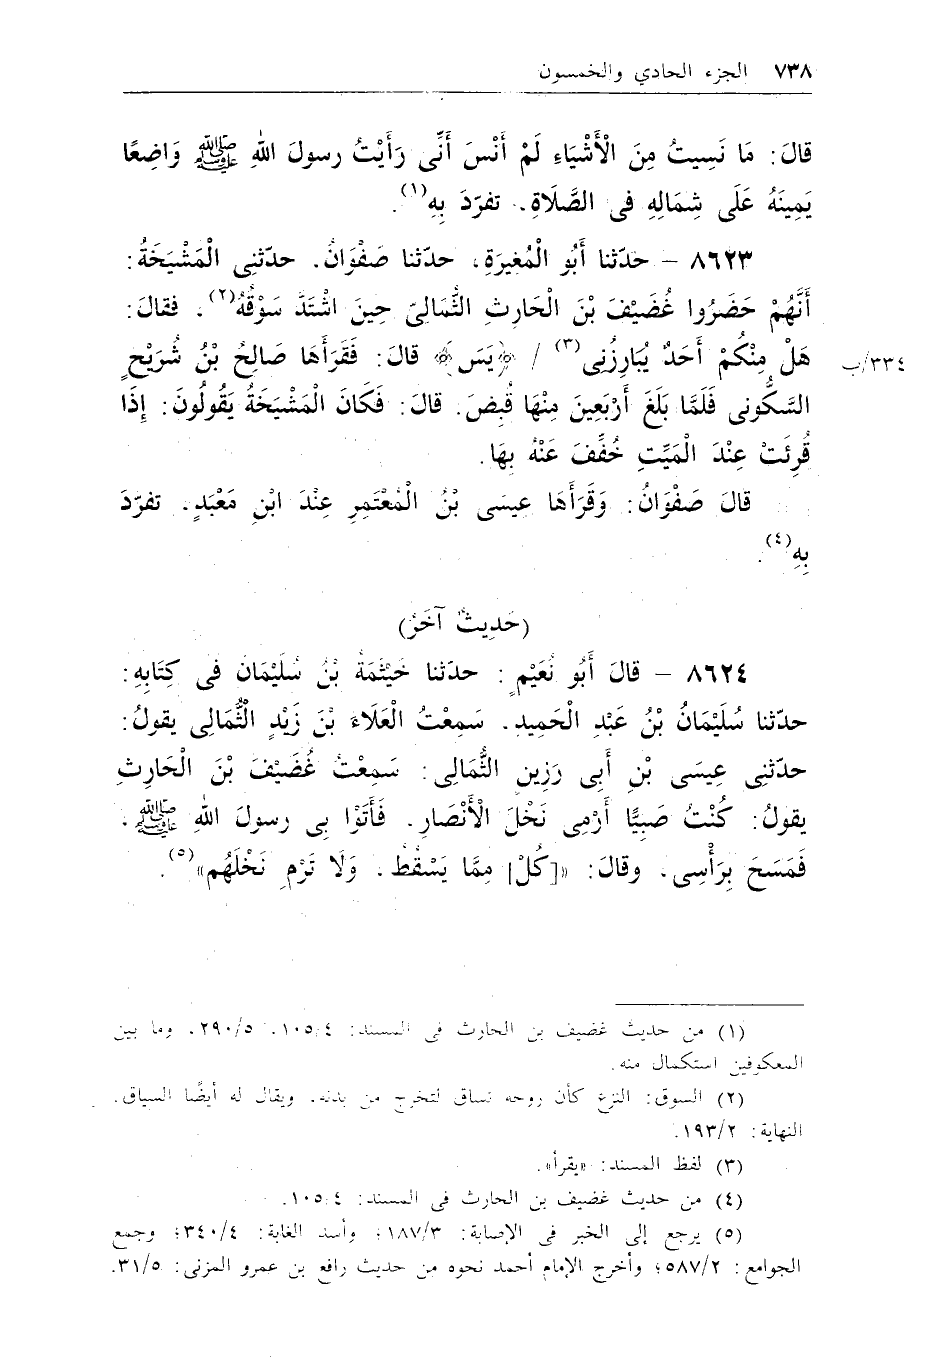 ٧٣٨ الجزء الحادي والخمسون
قالَ: مَا نَسِيتُ مِنَ الْأَشْيَاءِ لَمْ أَنْسَ أَنِّى رَأَيْتُ رسولَ اللهِ ﷺ وَاضِعًا
يَمِينَهُ عَلَى شِمَالِهِ فى الصَّلَاةِ. تفرّدَ بِهِ(١).
٨٦٢٣ – حدّثنا أَبُو الْمُغيرَةِ، حدّثنا صَفْوَانُ. حدّثنِى الْمَشْيَخَةُ:
أَنَّهُمْ حَضَرُوا غُضَيْفَ بْنَ الْحَارِثِ الثُّمالِىّ حِينَ اشْتَدَّ سَوْقُهُ(٢). فقالَ:
هَلْ مِنْكُمْ أَحَدٌ يُبَارِزُنِى(٣) / ﴿يَس﴾ قالَ: فَقَرَأَهَا صَالِحُ بْنُ شُرَيْحٍ
٣٣٤/ب
السَّكُونِى فَلَمَّا بَلَغَ أَرْبَعِينَ مِنْهَا قُبِضَ. قالَ: فَكَانَ الْمَشْيَخَةُ يَقُولُونَ: إِذَا
قُرِئَتْ عِنْدَ الْمَيِّتِ خُفِّفَ عَنْهُ بِهَا.
قالَ صَفْوَانُ: وَقَرَأَهَا عيسَى بْنُ الْمُعْتَمِرِ عِنْدَ ابْنِ مَعْبَدٍ. تفرّدَ
بِهِ(٤).
(حَدِيثٌ آخَرُ)
٨٦٢٤ – قالَ أَبُو نُعَيْمٍ: حدّثنا خَيْثَمَةُ بْنُ سُلَيْمَانَ فى كِتَابِهِ:
حدّثنا سُلَيْمَانُ بْنُ عَبْدِ الْحَمِيدِ. سَمِعْتُ الْعَلَاءَ بْنَ زَيْدٍ الثُّمَالِى يقولُ:
حدّثنِى عِيسَى بْنِ أَبِى رَزِينِ الثُّمَالِى: سَمِعْتُ غُضَيْفَ بْنَ الْحَارِثِ
يقولُ: كُنْتُ صَبِيًّا أَرْمِى نَخْلَ الْأَنْصَارِ. فَأَتَوْا بِى رسولَ اللهِ ﷺ،
فَمَسَحَ بِرَأْسِى، وقالَ: «[كُلْ] مِمَّا يَسْقُطُ، وَلَا تَرْمِ نَخْلَهُم»(٥).
(١) من حديث غضيف بن الحارث فى المسند: ١٠٥/٤. ٢٩٠/٥. وما بين
المعكوفين استكمال منه.
(٢) السوق: النزع كأن روحه تساق لتخرج من بدنه. ويقال له أيضًا السياق.
النهاية: ١٩٣/٢.
(٣) لفظ المسند: «يقرأ».
(٤) من حديث غضيف بن الحارث فى المسند: ١٠٥/٤.
(٥) يرجع إلى الخبر فى الإصابة: ١٨٧/٣؛ وأسد الغابة: ٣٤٠/٤؛ وجمع
الجوامع: ٥٨٧/٢؛ وأخرج الإمام أحمد نحوه من حديث رافع بن عمرو المزنى: ٣١/٥.